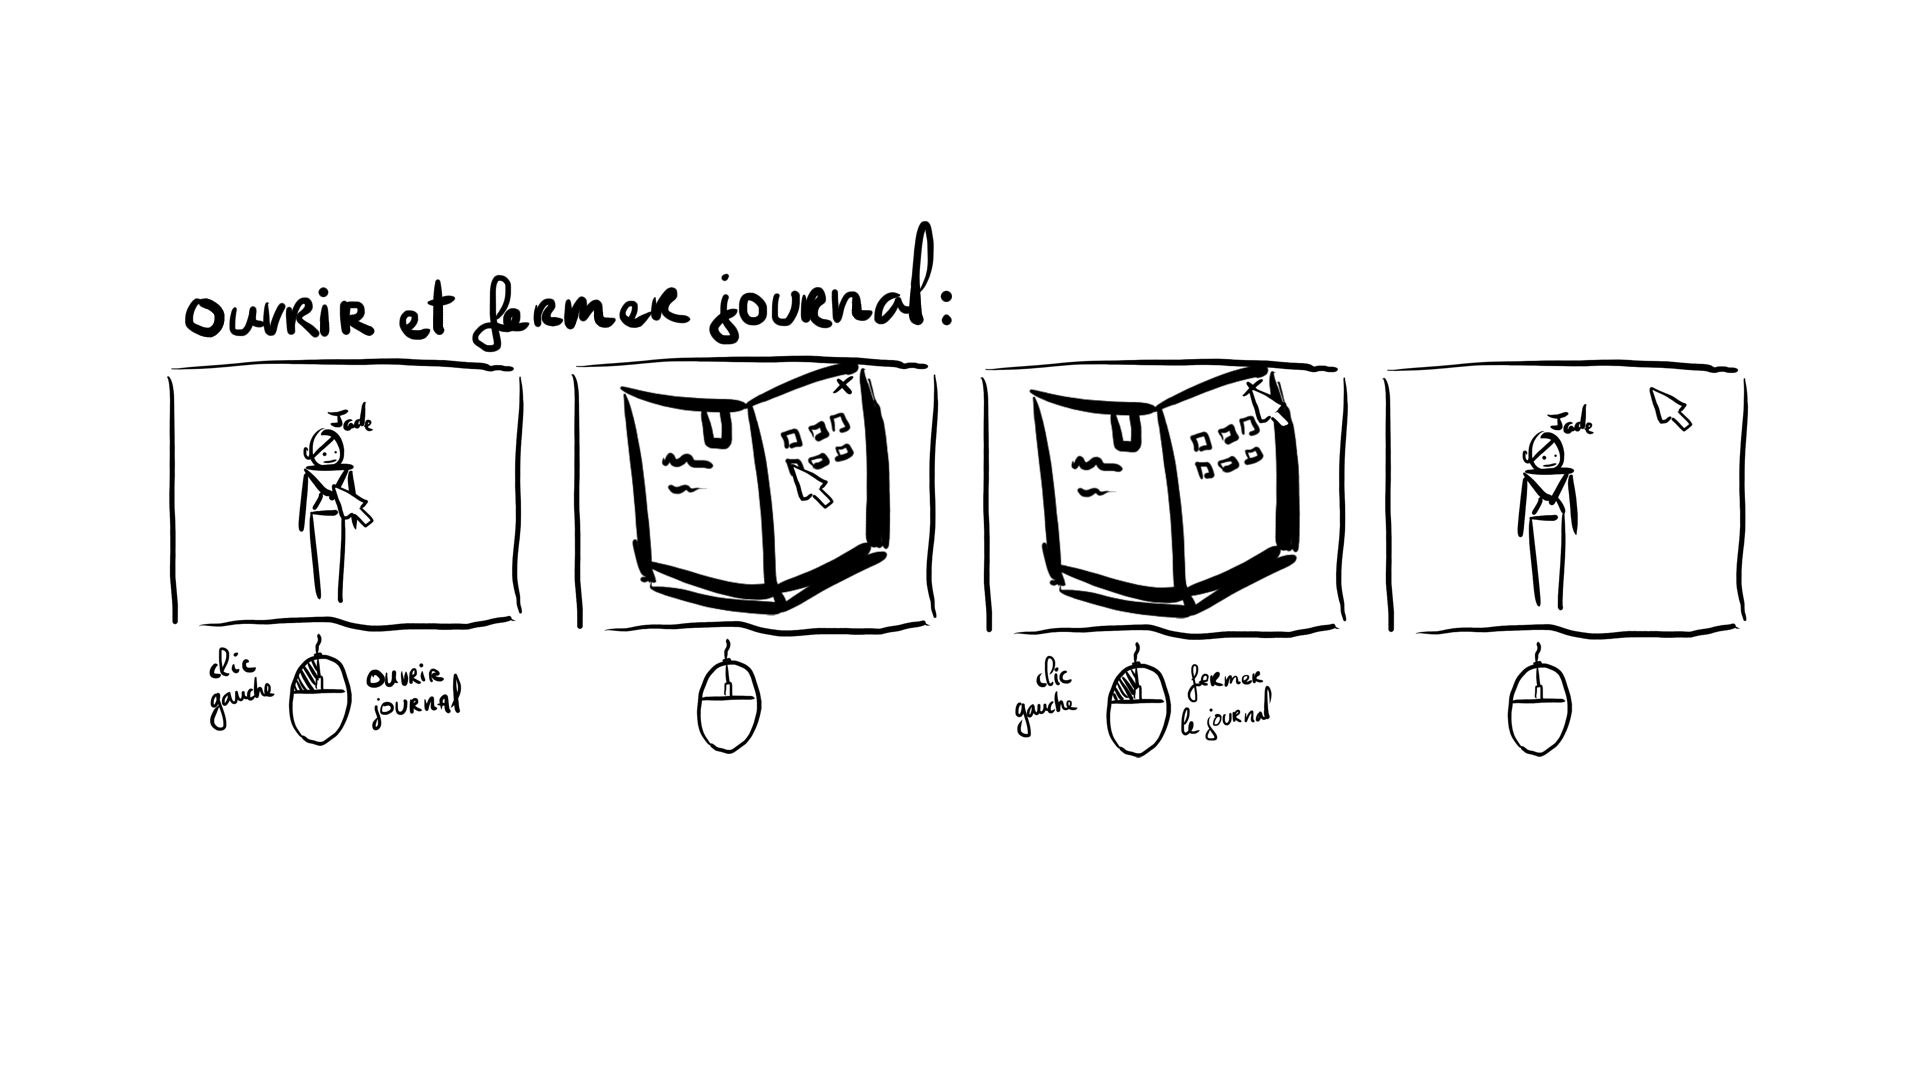 OUVRIR et fermer journal:
Jade
x
x
Jade
clic
gauche
OUVRIR
JOURNAL
clic
gauche
fermer
le journal